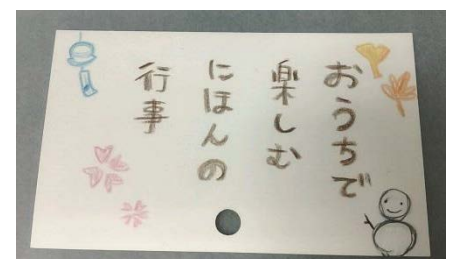 おうちで
楽しむ
にほんの
行事